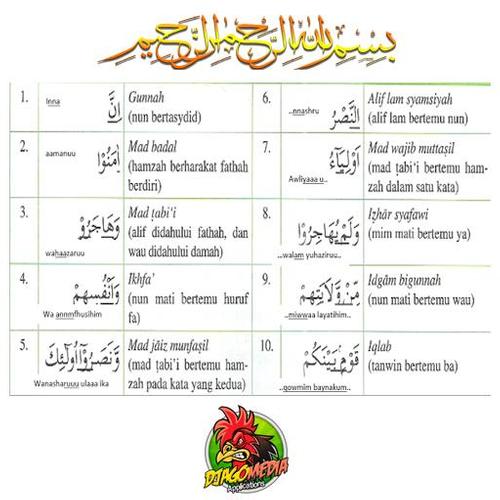 بسم الله الرحمن الرحيم
1.
Inna
اِنَّ
Gunnah
(nun bertasydid)
2.
aamanuu
اٰمَنُوْا
Mad badal
(hamzah berharakat fathah
berdiri)
3.
wahaazaruu
وَهَاجَرُوْا
Mad ṭabi'i
(alif didahului fathah, dan
wau didahului damah)
4.
Wa annmfhusihim
وَاَنْفُسِهِمْ
Ikhfa'
(nun mati bertemu huruf
fa)
5.
Wanasharuuu ulaaa ika
وَنَصَرُوْٓا اُولٰۤئِكَ
Mad jāiz munfaṣil
(mad ṭabi'i bertemu ham-
zah pada kata yang kedua)
6.
..nnashru
النَّصْرُ
Alif lam syamsiyah
(alif lam bertemu nun)
7.
Awliyaaa u..
اَوْلِيَاۤءُ
Mad wajib muttaṣil
(mad ṭabi'i bertemu ham-
zah dalam satu kata)
8.
..walam yuhaziruu..
وَلَمْ يُهَاجِرُوْا
Iẓhār syafawi
(mim mati bertemu ya)
9.
..miwwaa layatihim..
مِنْ وَّلَايَتِهِمْ
Idgām bigunnah
(nun mati bertemu wau)
10.
..qowmim baynakum..
قَوْمٍۢ بَيْنَكُمْ
Iqlab
(tanwin bertemu ba)
DJAGOMEDIA
Applications